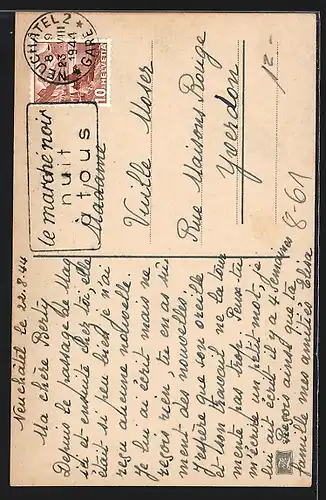 NEUCHÂTEL 2
GARE
23.VIII.1944
HELVETIA
10
le marché noir
nuit
à tous
Madame
Vuille Moser
Rue Maisons Rouge
Yverdon
12.-
8-61
Neuchâtel le 22.8.44
Ma chère Berty
Depuis le passage de Mag
ici et ensuite chez toi, elle
était si peu bien, je n'ai
reçu aucune nouvelle.
Je lui ai écrit mais ne
reçois rien, tu en as sû
ment des nouvelles.
J'espère que son oreille
et son travail ne la tour
mente pas trop. Peux-tu
m'écrire un petit mot, je
lui ai écrit il y a 4 semaines
Reçois ainsi que ta
famille mes amitiés Elisa